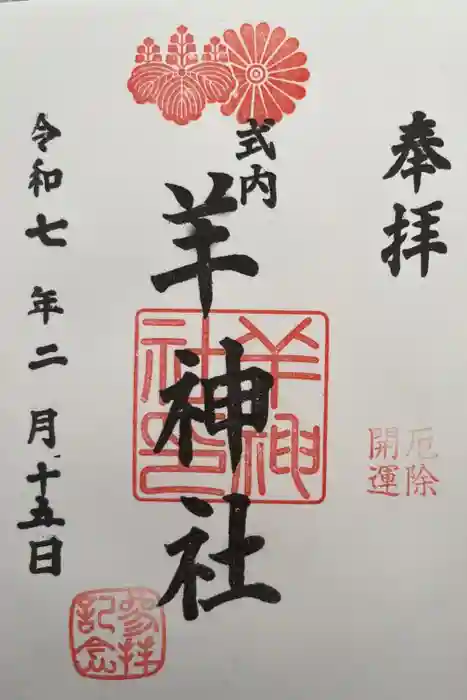 奉拝
厄除
開運
式内
羊神社
羊神社印
令和七年二月十五日
参拝記念